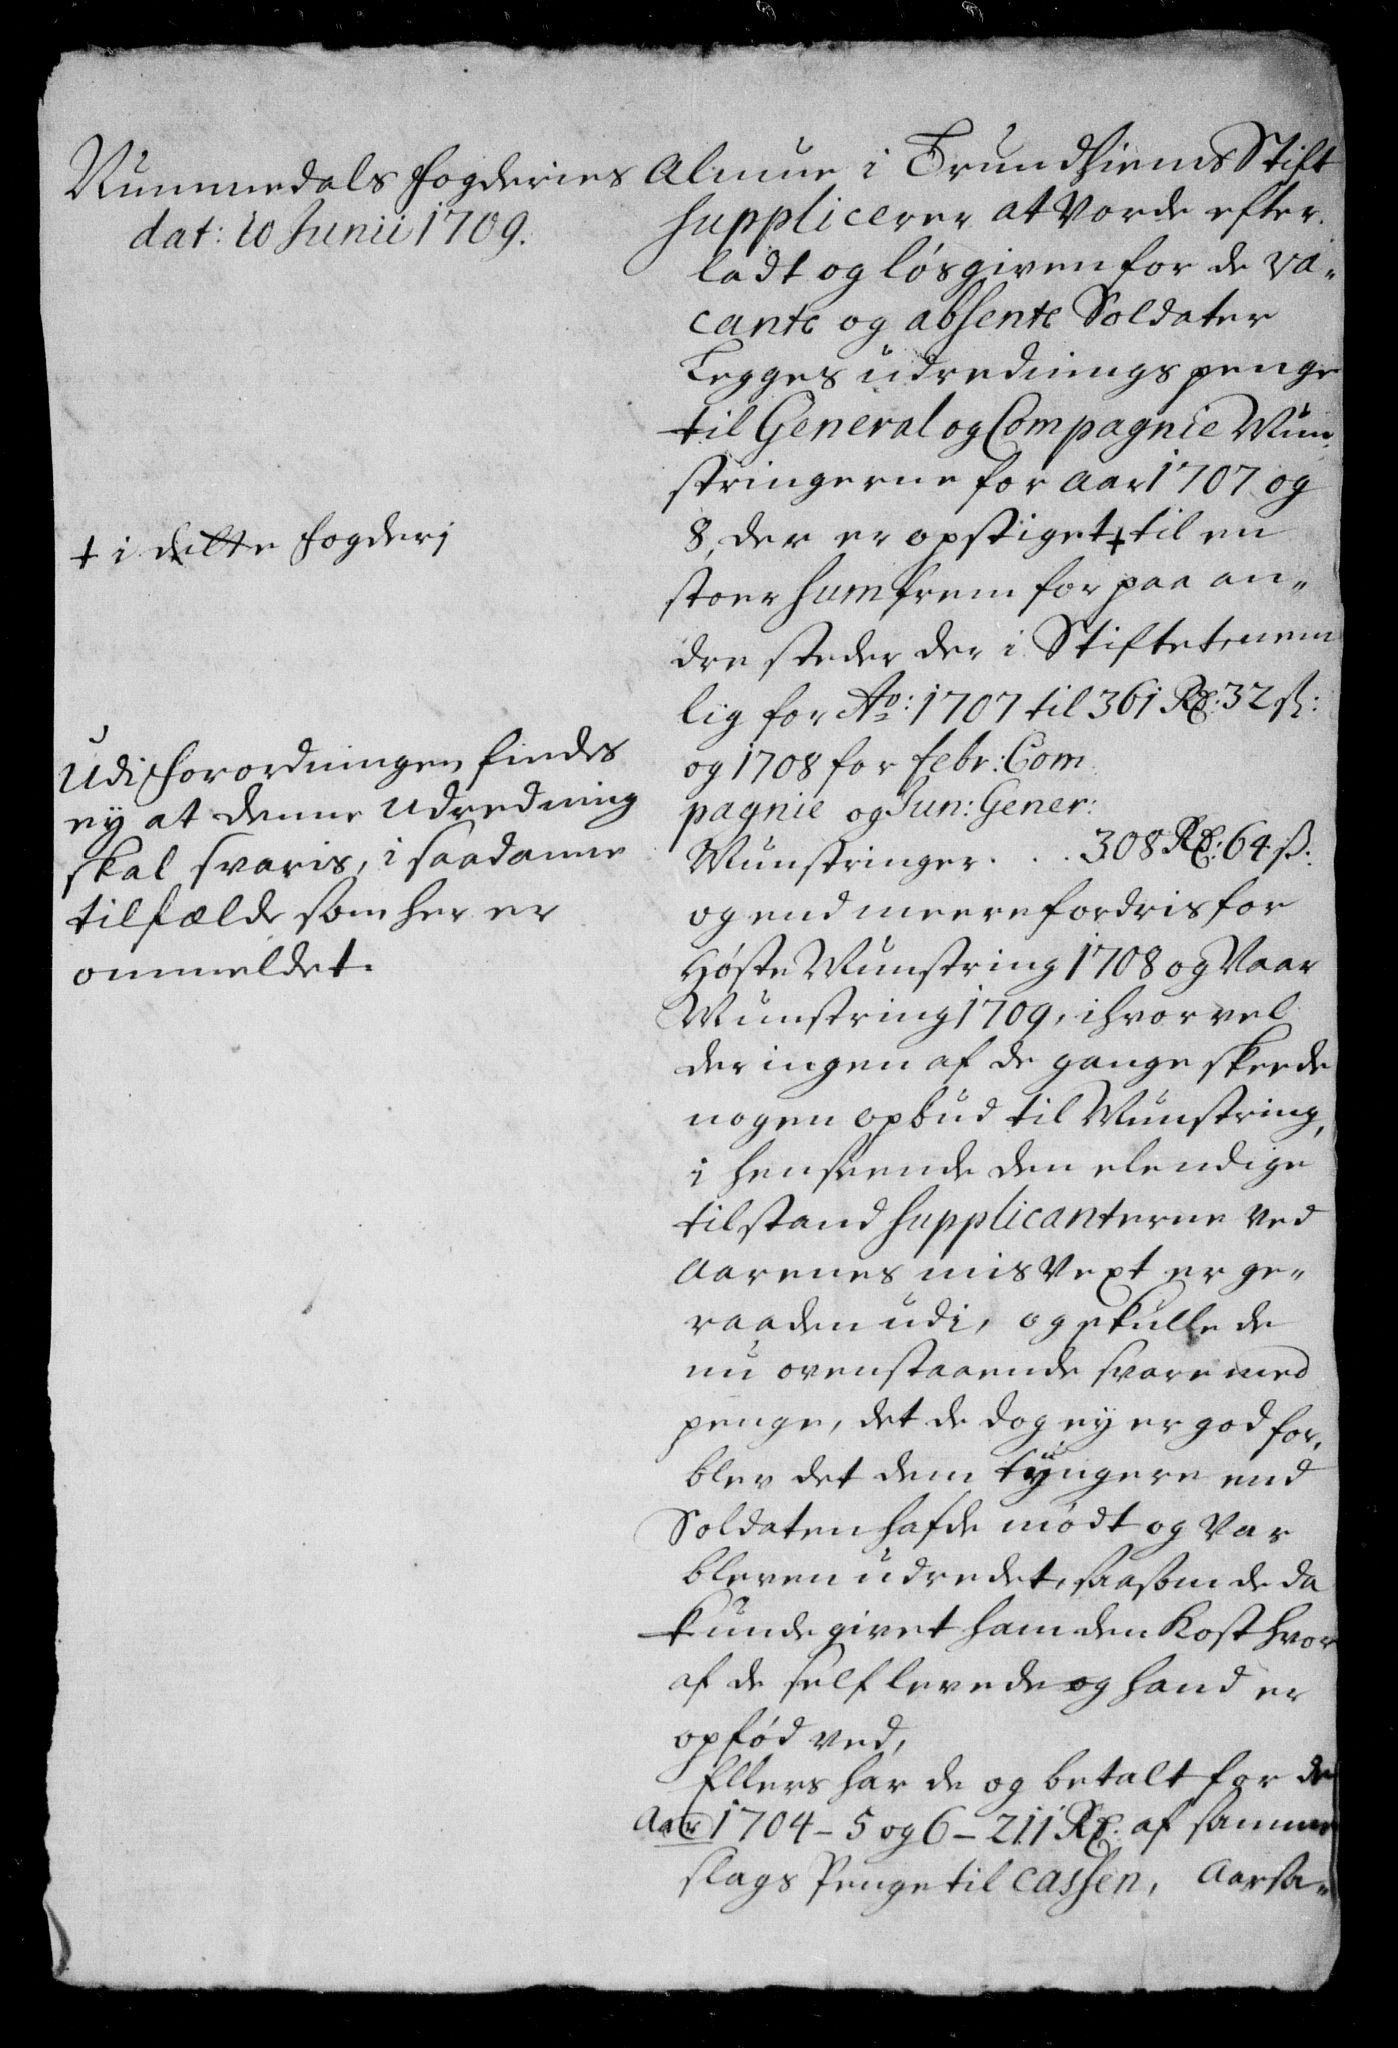 Nummedals Fogderies Almue i Trundhiems Stift
dat: 10 Junii 1709.
supplicerer at vorde efter-
ladt og løsgiven for de va-
cante og absente Soldater
Legges udrednings penge
til General og Compagnie Mun-
stringerne for Aar 1707 og
8, der er opstiget + til en
stoer sum frem for paa an-
dre steder der i Stiftet, nem-
lig for Ao: 1707 til 361 Rd: 32 s:
og 1708 for Febr: Com-
pagnie og Jun: Gener:
Munstringer . . . 308 Rd: 64 s:
og end meere fordris for
Høste Munstring 1708 og Vaar
Munstring 1709, ihvorvel
der ingen af de gange skeede
nogen opbud til Munstring,
i henseende den elendige
tilstand supplicanterne ved
Aarenes misvext er ge-
raaden udi, og skulle de
nu ovenstaaende svare med
penge, det de dog ey er god for,
blev det dem tyngere end
Soldaten hafde mødt og var
bleven udredet, saasom de da
kunde givet ham den Kost hvor
af de self levede og hand er
opfød ved,
Ellers har de og betalt for de
Aar 1704 - 5 og 6 - 211 Rd: af samme
slags Penge til Cassen, Aarsa-
+ i dette Fogderi
Udi Forordningen findes
ey at denne Udredning
skal svaris, i saadanne
tilfælde som her er
ommeldet.